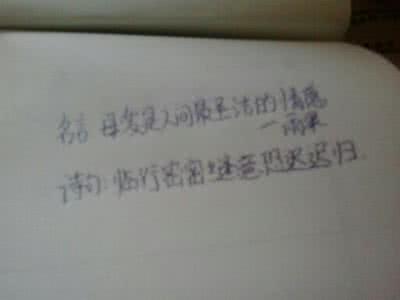 名言 母爱是人间最圣洁的情感
一雨果
诗句:临行密密缝意恐迟迟归